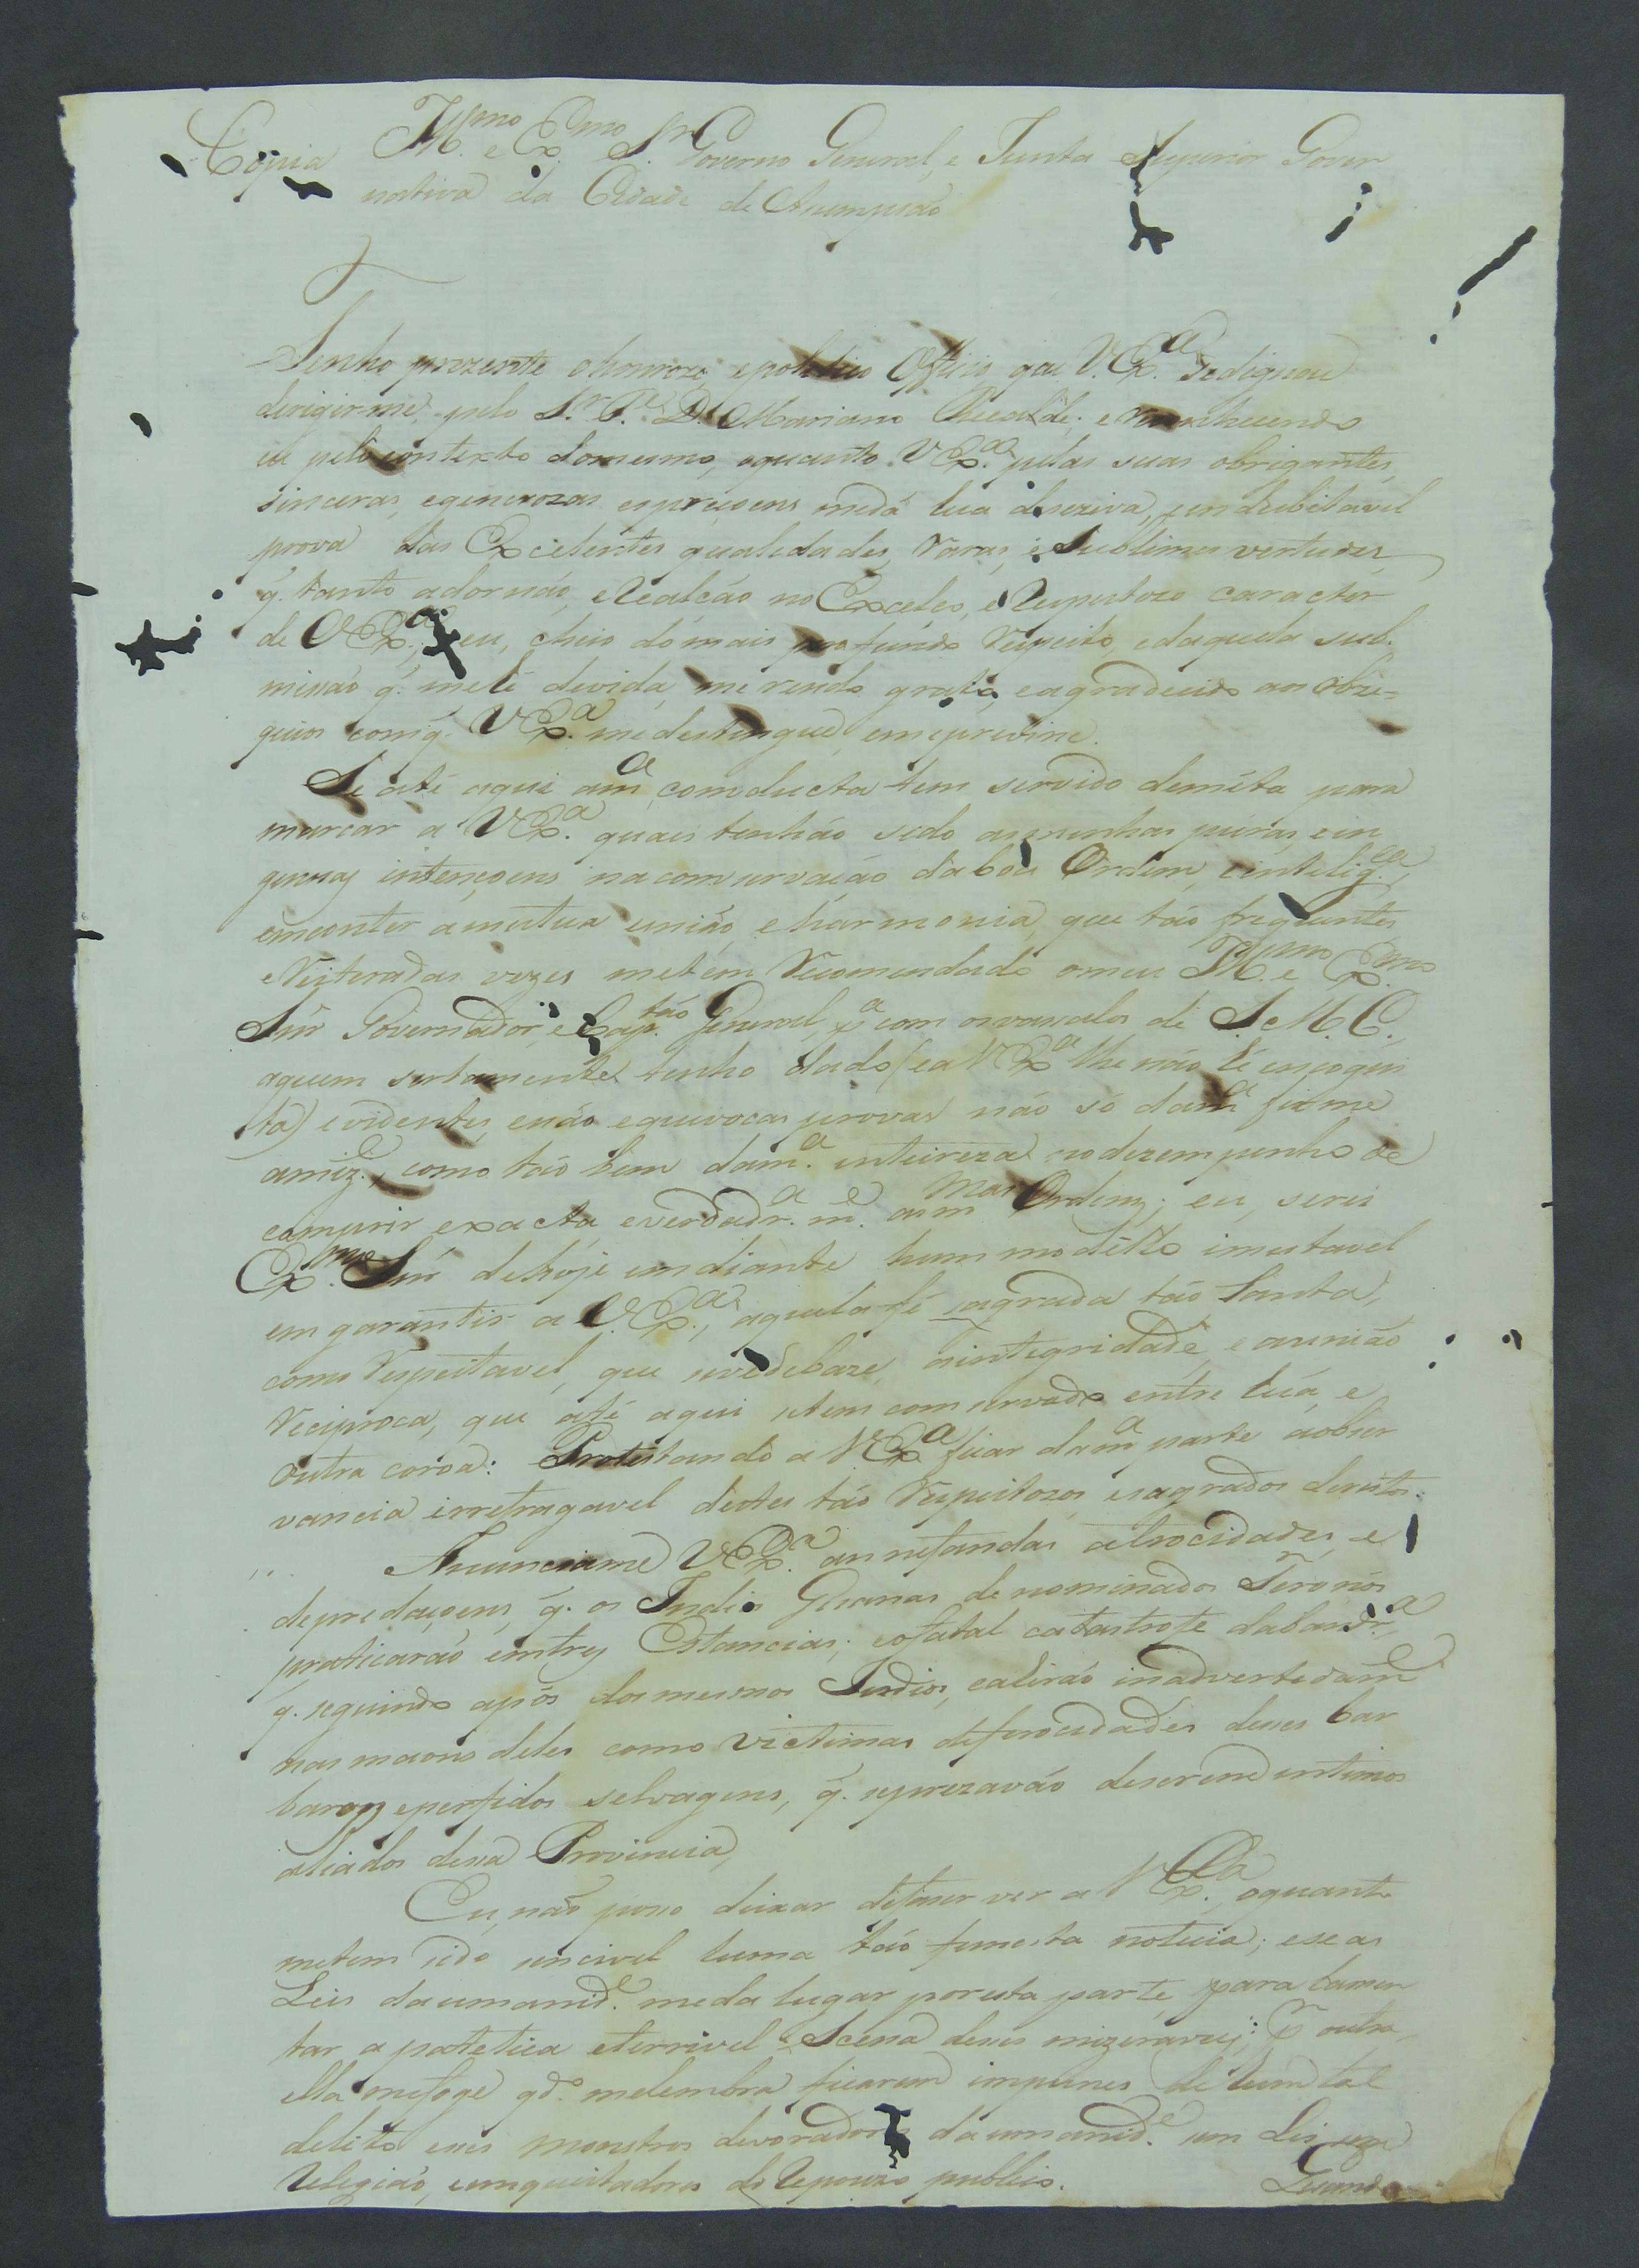 Copia Ill.mo e Ex.mo S.r Governo General, e Junta Superior Gover
nativa da Cidade de Asumpsáo
Tenho prezente o honrozo, e politico Officio, que V. Ex.a Se dignou
derigir-me pelo S.r T.e D. Mariano Recalde; e reconhecendo
eu pelo contexto do mesmo, aquanto V Ex.a pelas suas obrigantes,
sinceras, egenerozas expreçoens medá hua deseziva, eindubitavel
prova das Excelentes qualedades, raras, e Sublimes vertudes,
q. tanto adornáo, e Realçáo no Excelço, e Respeitozo caracter
de V Ex.a, eu, cheio do mais profundo Respeito, edaquela sub-
misáo q. me hé devida, me rendo grato, eagradecido aos obze-
quios comq. V Ex.a me destingue, emeprevine.
Se até aqui a m.a comducta tem servido deméta para
marcar a V Ex.a quais tenháo sido as minhas puras, ein
genuas intençoens na comservaçáo da boa Ordem, eintelig.ca,
emconter a mutua uniáo, e harmonia, que táo frequentes
e Reiteradas vezes metem Recomendado o meu Ill.mo e Ex.mo
Snr Governador, e Cap.tão General, p.a com os vasalos de S. M. C.
aquem sertamente tenho dado (ea V Ex.a lhe náo hé escoqui
ta) evidentes, enáo equivocas provas náo só da m.a firme
amiz.e, como táo bem da m.a enteireza no dezempenho de
comprir exacta, everdadr.a m.e as m.mas Ordens; eu, serei
Ex.mo Snr de hoje em diante hum modéllo imutavel
em garantir a V. Ex.a, aquela fé sagrada táo Santa,
como Respeitavel, que serve de baze, a integridade, e a uniáo
Reciproca, que até aqui setem comservado entre huá, e
outra coroa: Protestando a V Ex.a ficar da m.a parte aobser
vancia irrefragavel destes táo Respeitozos, esagrados direitos.
Anunciame V Ex.a as nefandas atrocidades, e
depredaçoens, q. os Indios Guanas denominados Terenos
praticaráo em tres Estancias; eofatal catastrofe da band.ra,
q. seguindo após dos mesmos Indios, cahiráo inadvertedam.e
nas maons deles como victimas de ferocidades deses bar
baros, eperfidos selvagens, q. seprezaváo deserem intimos
aliados desa Provincia,
Eu, náo poso deixar defazer ver a V Ex.a, oquanto
metem sido sencivel huma táo funesta noticia; ese as
Leis da umanid.e me da lugar por esta parte, para lamen
tar a patetica, e terrivel Scena deses mizeraveis; p.r outra
ella mefoge qd.o melembra ficarem impunes de hum tal
delito eses monstros devoradores da umanid.e sem Lei, sem
Relegiáo, eemquietadores do Repouzo publico.
Quando